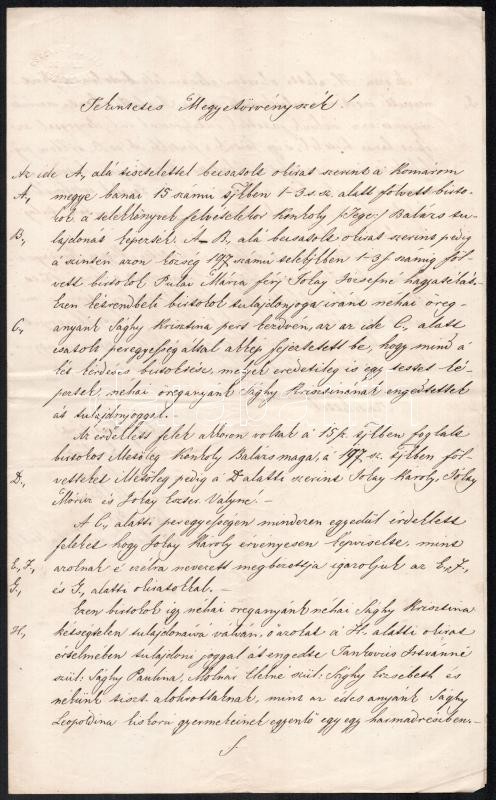 Tekintetes Megyetörvényszék!
Az ide A, alá tisztelettel becsatolt okirat szerint a Komárom
A, megye banai 15 számú tjkben 1-3 s sz. alatt fölvett birto-
kok a telekkönyvek felvételekor Konkoly Balázs tu-
B, lajdonát képezték. A B, alá becsatolt okirat szerint pedig
a szintén azon község 197 számú telekjkben 1-3 számig föl-
vett birtokok Pulai Mária férj Jolay Józsefné hagyatékát.
Ezen kétrendbeli birtokok tulajdonjoga iránt néhai öreg-
C, anyánk Sághy Krisztina pert kezdvén, az az ide C, alatt
csatolt peregyesség által akkép fejeztetett be, hogy mind a
két kérdéses birtokrész, melyek eredetileg is egy testet ké-
peztek, néhai öreganyánk Sághy Krisztinának engedtettek
át tulajdonjoggal.
Az érdeklett felek akkoron voltak a 15 tjkben foglalt
birtokot illetőleg Konkoly Balázs maga, a 197 sz. tjkben föl-
D, vetteket illetőleg pedig a D alatti szerint Jolay Károly, Jolay
Móricz és Jolay Eszter Valyné.-
A C, alatti peregyességen mindezen egyedül érdeklett
feleket hogy Jolay Károly érvényesen képviselte, mint
E, F, azoknak e czélra nevezett megbizottja igazoljuk az E, F,
G, és G, alatti okiratokkal.-
Ezen birtokok igy néhai öreganyánk néhai Sághy Krisztina
H, kétségtelen tulajdonaivá válván, ő azokat a H. alatti okirat
értelmében tulajdoni joggal át engedte Jankovits Istvánné
szül: Sághy Paulina, Molnár Elekné szül: Sághy Erzsébeth és
nékünk tiszt. alolirottaknak, mint az édes anyánk Sághy
Leopoldina kiskoru gyermekeinek egyenlő egy egy harmadrészben.-